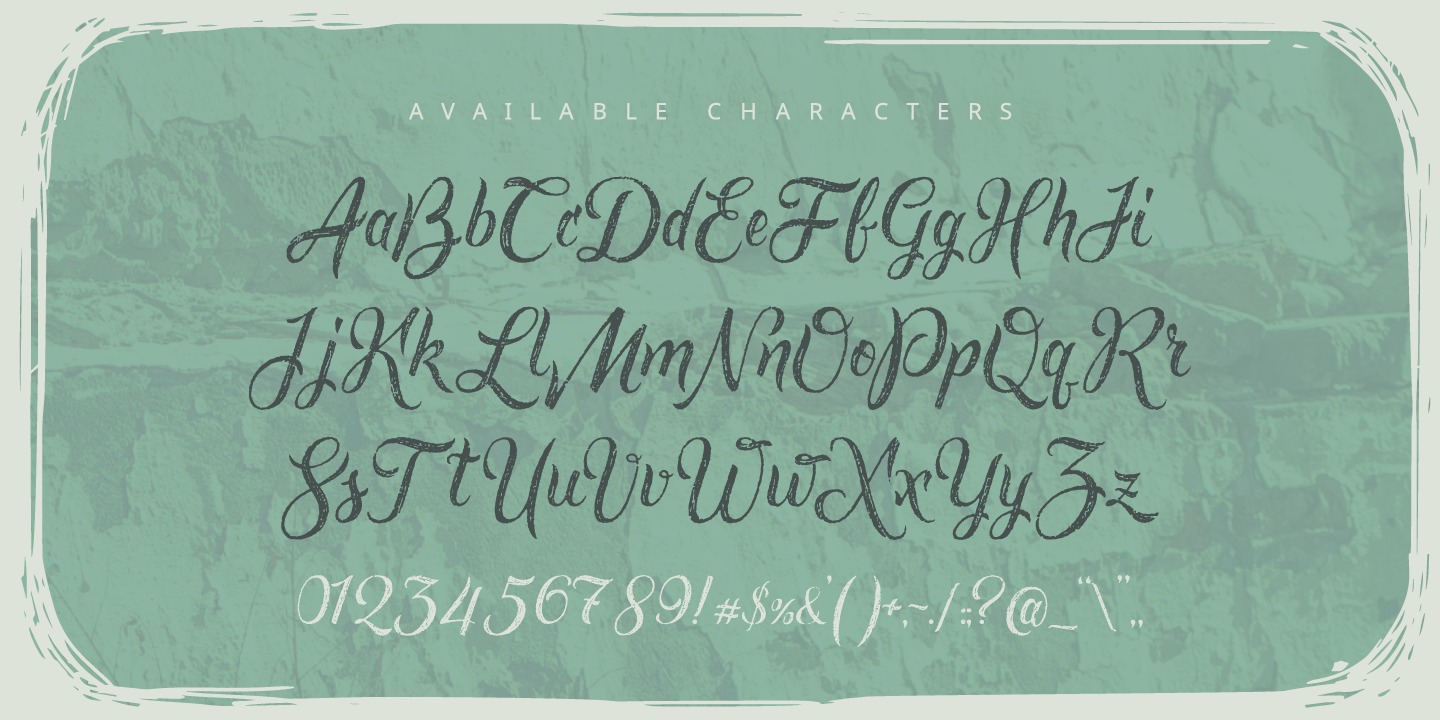 AVAILABLE CHARACTERS
AaBbCcDdEeFfGgHhIi
JjKkLlMmNnOoPpQqRr
SsTtUuVvWwXxYyZz
0123456789!#$%&'()+,-./:;?@_“\”„